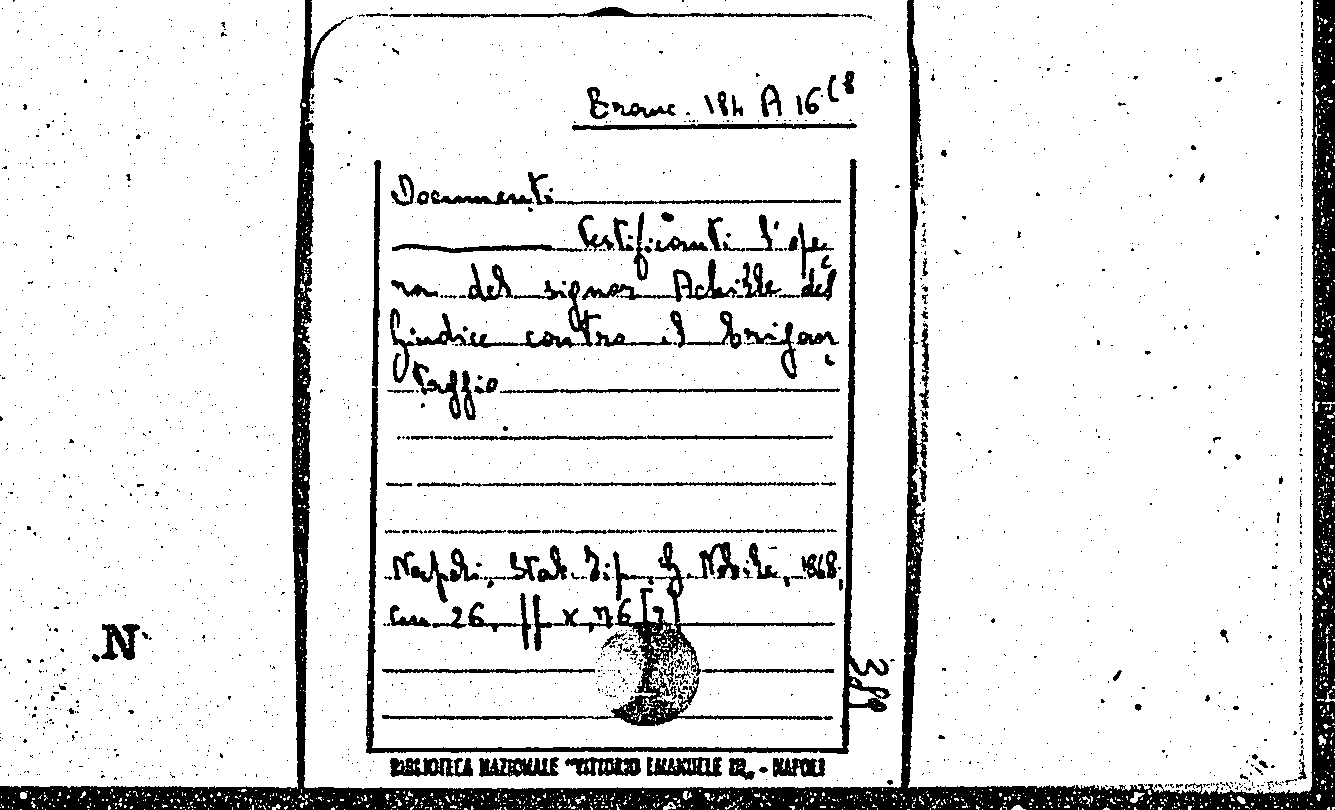 Branc. 184 A 16 (8
Documenti
testificanti l'ope,
ra del signor Achille del
Giudice contro il brigan,
taggio
Napoli, Stab. Tip. G. Nobile, 1868,
cm. 26, pp. x, 76 [2]
N.
389
BIBLIOTECA NAZIONALE "VITTORIO EMANUELE III" - NAPOLI